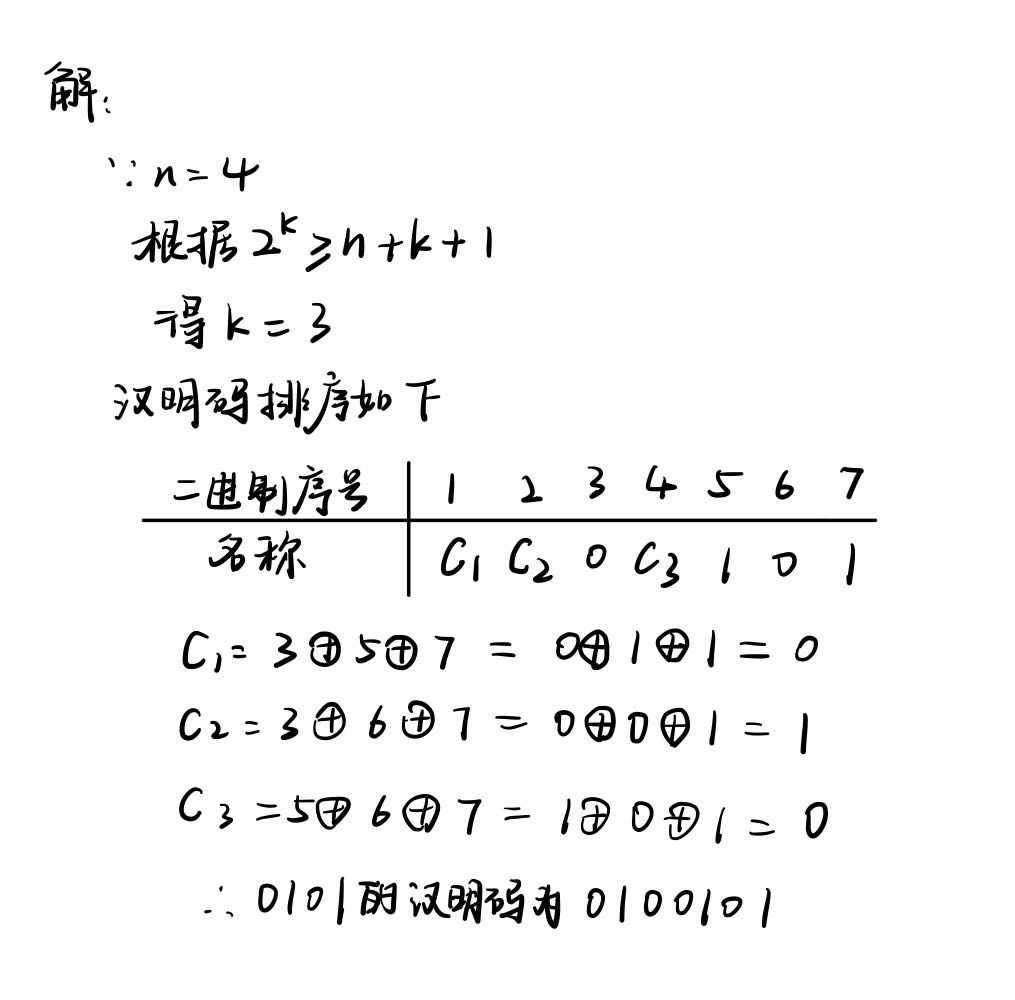 解:
∵ n = 4
根据 2^k ≥ n + k + 1
得 k = 3
汉明码排序如下
二进制序号 1 2 3 4 5 6 7
名称 C₁ C₂ 0 C₃ 1 0 1
C₁ = 3⊕5⊕7 = 0⊕1⊕1 = 0
C₂ = 3⊕6⊕7 = 0⊕0⊕1 = 1
C₃ = 5⊕6⊕7 = 1⊕0⊕1 = 0
∴ 0101的汉明码为 0100101